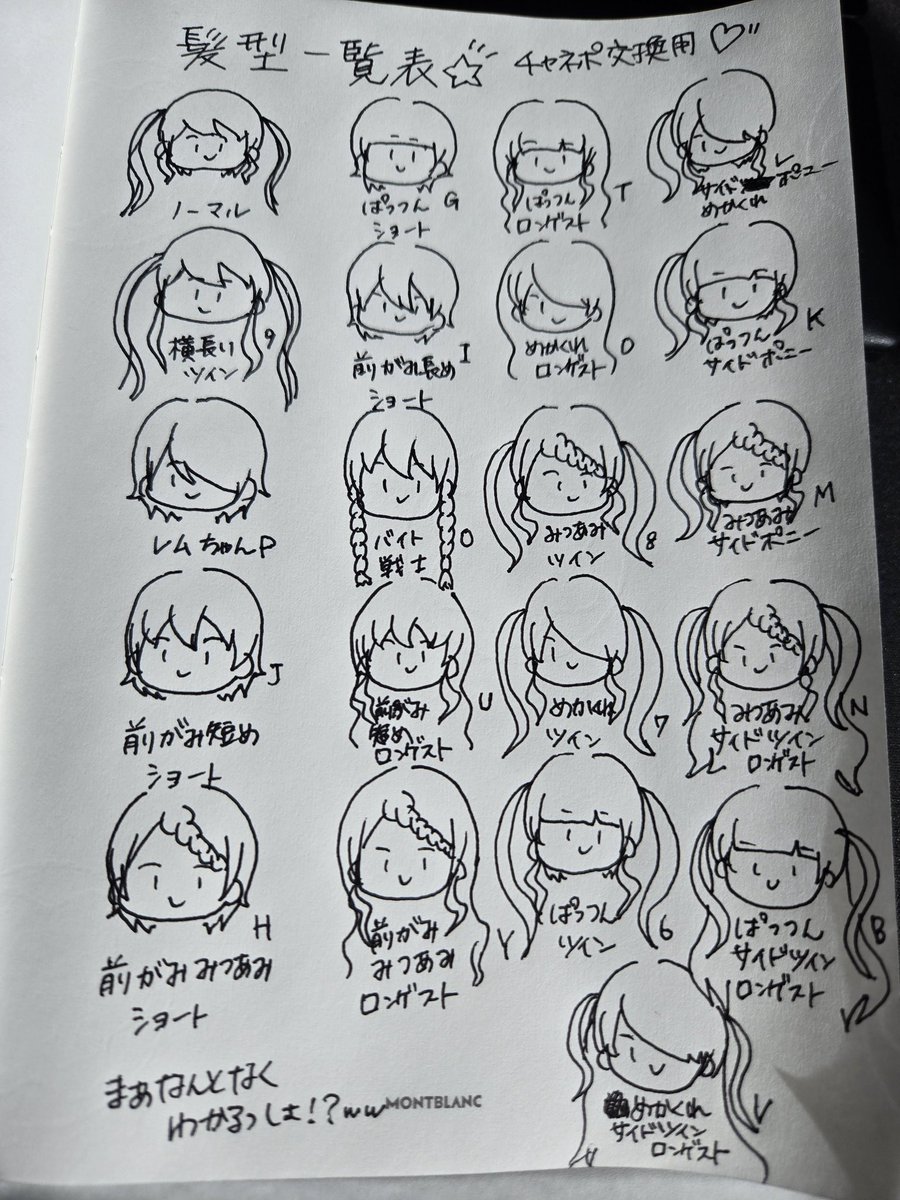 髪型一覧表☆ チャネポ交換用♡
ノーマル
ぱっつん G
ショート
ぱっつん T
ロングスト
サイドポニー L
めかくれ
横長い 9
ツイン
前がみ長め I
ショート
めかくれ O
ロングスト
ぱっつん K
サイドポニー
レムちゃん P
バイト 0
戦士
みつあみ 8
ツイン
みつあみ M
サイドポニー
前がみ短め J
ショート
前がみ U
短め
ロングスト
めかくれ 7
ツイン
みつあみ N
サイドツイン
ロングスト
前がみみつあみ H
ショート
前がみ Y
みつあみ
ロングスト
ぱっつん 6
ツイン
ぱっつん B
サイドツイン
ロングスト
めかくれ V
サイドツイン
ロングスト
まぁなんとなく
わかるっしょ!?ww
MONTBLANC